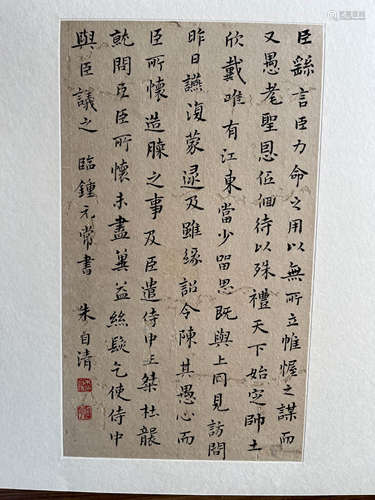 臣繇言臣力命之用以無所立帷幄之謀而
又愚耄聖恩低徊待以殊禮天下始定師土
欣戴唯有江東當少留思既與上同見訪問
昨日讌復蒙逮及雖緣詔令陳其愚心而
臣所懷造膝之事及臣遣侍中王粲杜襲
就問臣臣所懷未盡冀益絲髮乞使侍中
與臣議之 臨鍾元常書 朱自清